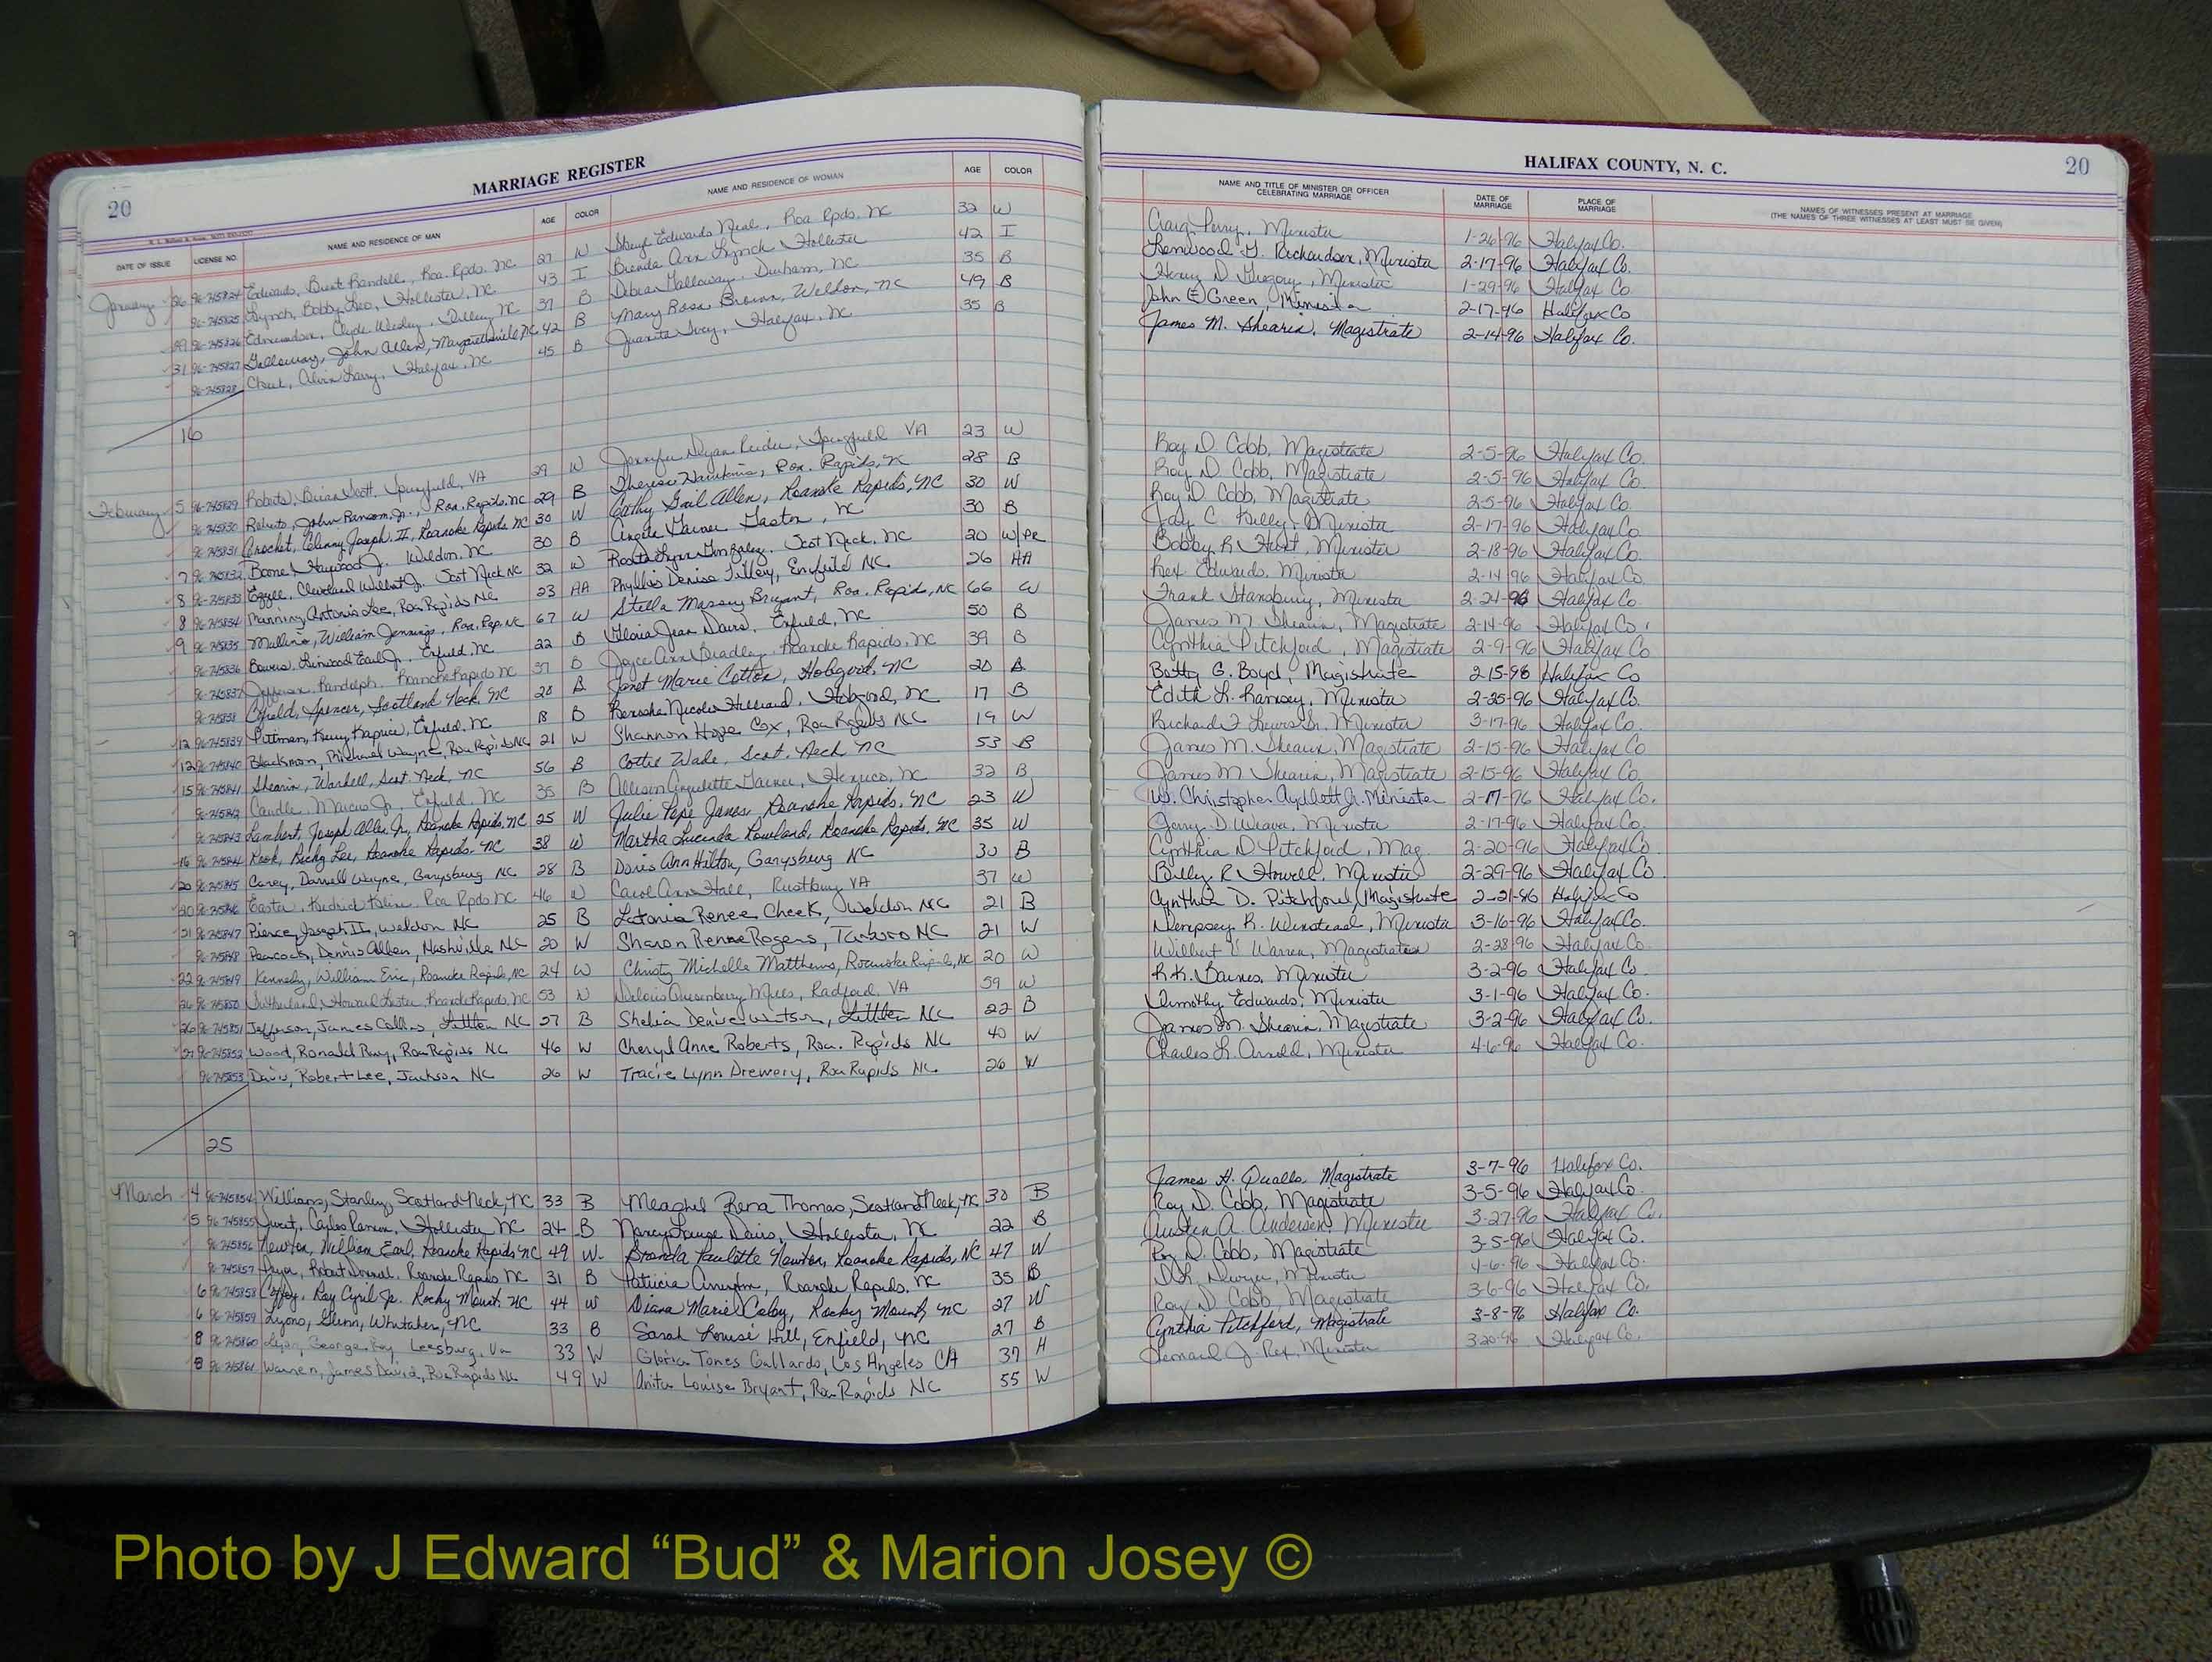 20
MARRIAGE REGISTER
DATE OF ISSUE LICENSE NO. NAME AND RESIDENCE OF MAN AGE COLOR NAME AND RESIDENCE OF WOMAN AGE COLOR
January 26 96-745824 Edwards, Brent Randell, Roa. Rpds. NC 27 W Edwards Neal, Roa Rpds. NC 32 W
96-745825 Lynch, Bobby Leo, Hollister, NC 43 I Brenda Ann Lynch Hollister 42 I
96-745826 Edmundson, Clyde Wesley, NC 37 B Debra Galloway, Durham, NC 35 B
31 96-745827 Galloway, John Allen, NC 42 B Mary Rosa Brown, Weldon, NC 49 B
96-745828 Cheek, Alvin Larry, Halifax, NC 45 B Juanita Ivey, Halifax, NC 35 B
16
February 5 96-745829 Roberts, Brian Scott, Springfield, VA 29 W Jennifer Dyan Springfield VA 23 W
96-745830 Roberts, John Ransom, Jr., Roa. Rapids, NC 29 B Theresa Hawkins, Roa. Rapids, NC 28 B
96-745831 Crocket, Joseph, II, Roanoke Rapids NC 30 W Cathy Gail Allen, Roanoke Rapids, NC 30 W
7 96-745832 Boone, Haywood Jr. Weldon, NC 30 B Angela Garner Gaston, NC 30 B
8 96-745833 Cleveland Jr. Scot Neck NC 32 W Lynn Gonzalez, Scot Neck, NC 20 W/PR
8 96-745834 Manning, Antonio Lee, Roa Rapids NC 23 AA Phyllis Denise Tilley, Enfield NC 26 AA
9 96-745835 Mullins, William Jennings, Roa. Rap. NC 67 W Stella Massey Bryant, Roa. Rapids, NC 66 W
96-745836 Linwood Earl Jr. Enfield, NC 22 B Gloria Jean Davis, Enfield, NC 50 B
96-745837 Jefferson, Randolph, Roanoke Rapids NC 37 B Joyce Ann Bradley, Roanoke Rapids, NC 39 B
96-745838 Spencer, Scotland Neck, NC 20 B Janet Marie Cotton, Hobgood, NC 20 B
12 96-745839 Pittman, Kerry Enfield, NC 18 B Nicole Hilliard, Hobgood, NC 17 B
12 96-745840 Blackmon, Michael Wayne, Roa Rapids NC 21 W Shannon Hope Cox, Roa Rapids NC 19 W
15 96-745841 Shearin, Scot. Neck, NC 56 B Cottie Wade, Scot. Neck NC 53 B
96-745842 Caudle, Marcus Jr. Enfield, NC 35 B Allison Garner, Henrico, NC 32 B
96-745843 Lambert, Joseph Allen Jr., Roanoke Rapids, NC 25 W Julie Page James, Roanoke Rapids, NC 23 W
16 96-745844 Ricky Lee, Roanoke Rapids, NC 38 W Martha Lucinda Rowland, Roanoke Rapids, NC 35 W
20 96-745845 Carey, Darnell Wayne, Garysburg NC 28 B Doris Ann Hilton, Garysburg NC 30 B
20 96-745846 Easter, Roa Rpds NC 46 W Carol Ann Hall, Rustburg VA 37 W
21 96-745847 Pierce, Joseph II, Weldon NC 25 B Latonia Renee Cheek, Weldon NC 21 B
96-745848 Peacock, Dennis Allen, Nashville NC 20 W Sharon Renne Rogers, Tarboro NC 21 W
22 96-745849 Kennedy, William Eric, Roanoke Rapids, NC 24 W Christy Michelle Matthews, Roanoke Rapids, NC 20 W
96-745850 Sutherland, Howard Roanoke Rapids, NC 53 W Quesenberry Mills, Radford, VA 59 W
26 96-745851 Jefferson, James Collins, Littleton NC 27 B Shelia Denise Watson, Littleton NC 22 B
27 96-745852 Wood, Ronald Perry, Roa Rapids NC 46 W Cheryl Anne Roberts, Roa. Rapids NC 40 W
96-745853 Davis, Robert Lee, Jackson NC 26 W Tracie Lynn Drewery, Roa Rapids NC 26 W
25
March 4 96-745854 Williams, Stanley, Scotland Neck, NC 33 B Rena Thomas, Scotland Neck, NC 30 B
5 96-745855 Hollister, NC 24 B Nancy Louise Davis, Hollister, NC 22 B
96-745856 Newton, William Earl, Roanoke Rapids NC 49 W Brenda Paulette Newton, Roanoke Rapids, NC 47 W
96-745857 Roanoke Rapids NC 31 B Patricia Roanoke Rapids. NC 35 B
6 96-745858 Coffey, Ray Cyril Jr. Rocky Mount. NC 44 W Diana Marie Rocky Mount, NC 27 W
6 96-745859 Lyons, Glenn, Whitakers, NC 33 B Sarah Louise Hill, Enfield, NC 27 B
8 96-745860 George Ray Leesburg, Va 33 W Gloria Tones Gallardo, Los Angeles CA 37 H
8 96-745861 Warren, James David, Roa Rapids NC 49 W Anita Louise Bryant, Roa Rapids NC 55 W
HALIFAX COUNTY, N. C.
20
NAME AND TITLE OF MINISTER OR OFFICER CELEBRATING MARRIAGE DATE OF MARRIAGE PLACE OF MARRIAGE NAMES OF WITNESSES PRESENT AT MARRIAGE (THE NAMES OF THREE WITNESSES AT LEAST MUST BE GIVEN)
Craig Perry, Minister 1-26-96 Halifax Co.
Lenwood G. Richardson, Minister 2-17-96 Halifax Co.
Henry D. Gregory, Minister 1-29-96 Halifax Co
John E Green, Minister 2-17-96 Halifax Co
James M. Shearin, Magistrate 2-14-96 Halifax Co.
Roy D. Cobb, Magistrate 2-5-96 Halifax Co.
Roy D. Cobb, Magistrate 2-5-96 Halifax Co.
Roy D. Cobb, Magistrate 2-5-96 Halifax Co
Jay C. Kelly, Minister 2-17-96 Halifax Co
Bobby R. Minister 2-18-96 Halifax Co.
Rex Edwards, Minister 2-14-96 Halifax Co.
Frank Stansbury, Minister 2-24-96 Halifax Co.
James M Shearin, Magistrate 2-14-96 Halifax Co.
Cynthia Pitchford, Magistrate 2-9-96 Halifax Co
Betty G. Boyd, Magistrate 2-15-96 Halifax Co
Edith L. Ramsey, Minister 2-25-96 Halifax Co.
Richard Lewis Sr. Minister 3-17-96 Halifax Co.
James M. Shearin, Magistrate 2-15-96 Halifax Co
James M Shearin, Magistrate 2-15-96 Halifax Co.
W. Christopher Aydlett Jr. Minister 2-17-96 Halifax Co.
Jerry D. Weaver, Minister 2-17-96 Halifax Co.
Cynthia D Pitchford, Mag. 2-20-96 Halifax Co.
Billy R. Howell, Minister 2-29-96 Halifax Co.
Cynthia D. Pitchford, Magistrate 2-21-96 Halifax Co
Dempsey R. Winstead, Minister 3-16-96 Halifax Co.
Wilbert V. Warren, Magistrate 2-28-96 Halifax Co.
R.K. Barnes, Minister 3-2-96 Halifax Co.
Timothy Edwards, Minister 3-1-96 Halifax Co.
James M. Shearin, Magistrate 3-2-96 Halifax Co.
Charles L. Arnold, Minister 4-6-96 Halifax Co.
James H. Qualls, Magistrate 3-7-96 Halifax Co.
Roy D. Cobb, Magistrate 3-5-96 Halifax Co.
Austin A. Anderson, Minister 3-27-96 Halifax Co.
Roy D. Cobb, Magistrate 3-5-96 Halifax Co.
Minister 4-6-96 Halifax Co.
Roy D. Cobb Magistrate 3-6-96 Halifax Co.
Cynthia Pitchford, Magistrate 3-8-96 Halifax Co.
Minister 3-20-96 Halifax Co.
Photo by J Edward “Bud” & Marion Josey ©